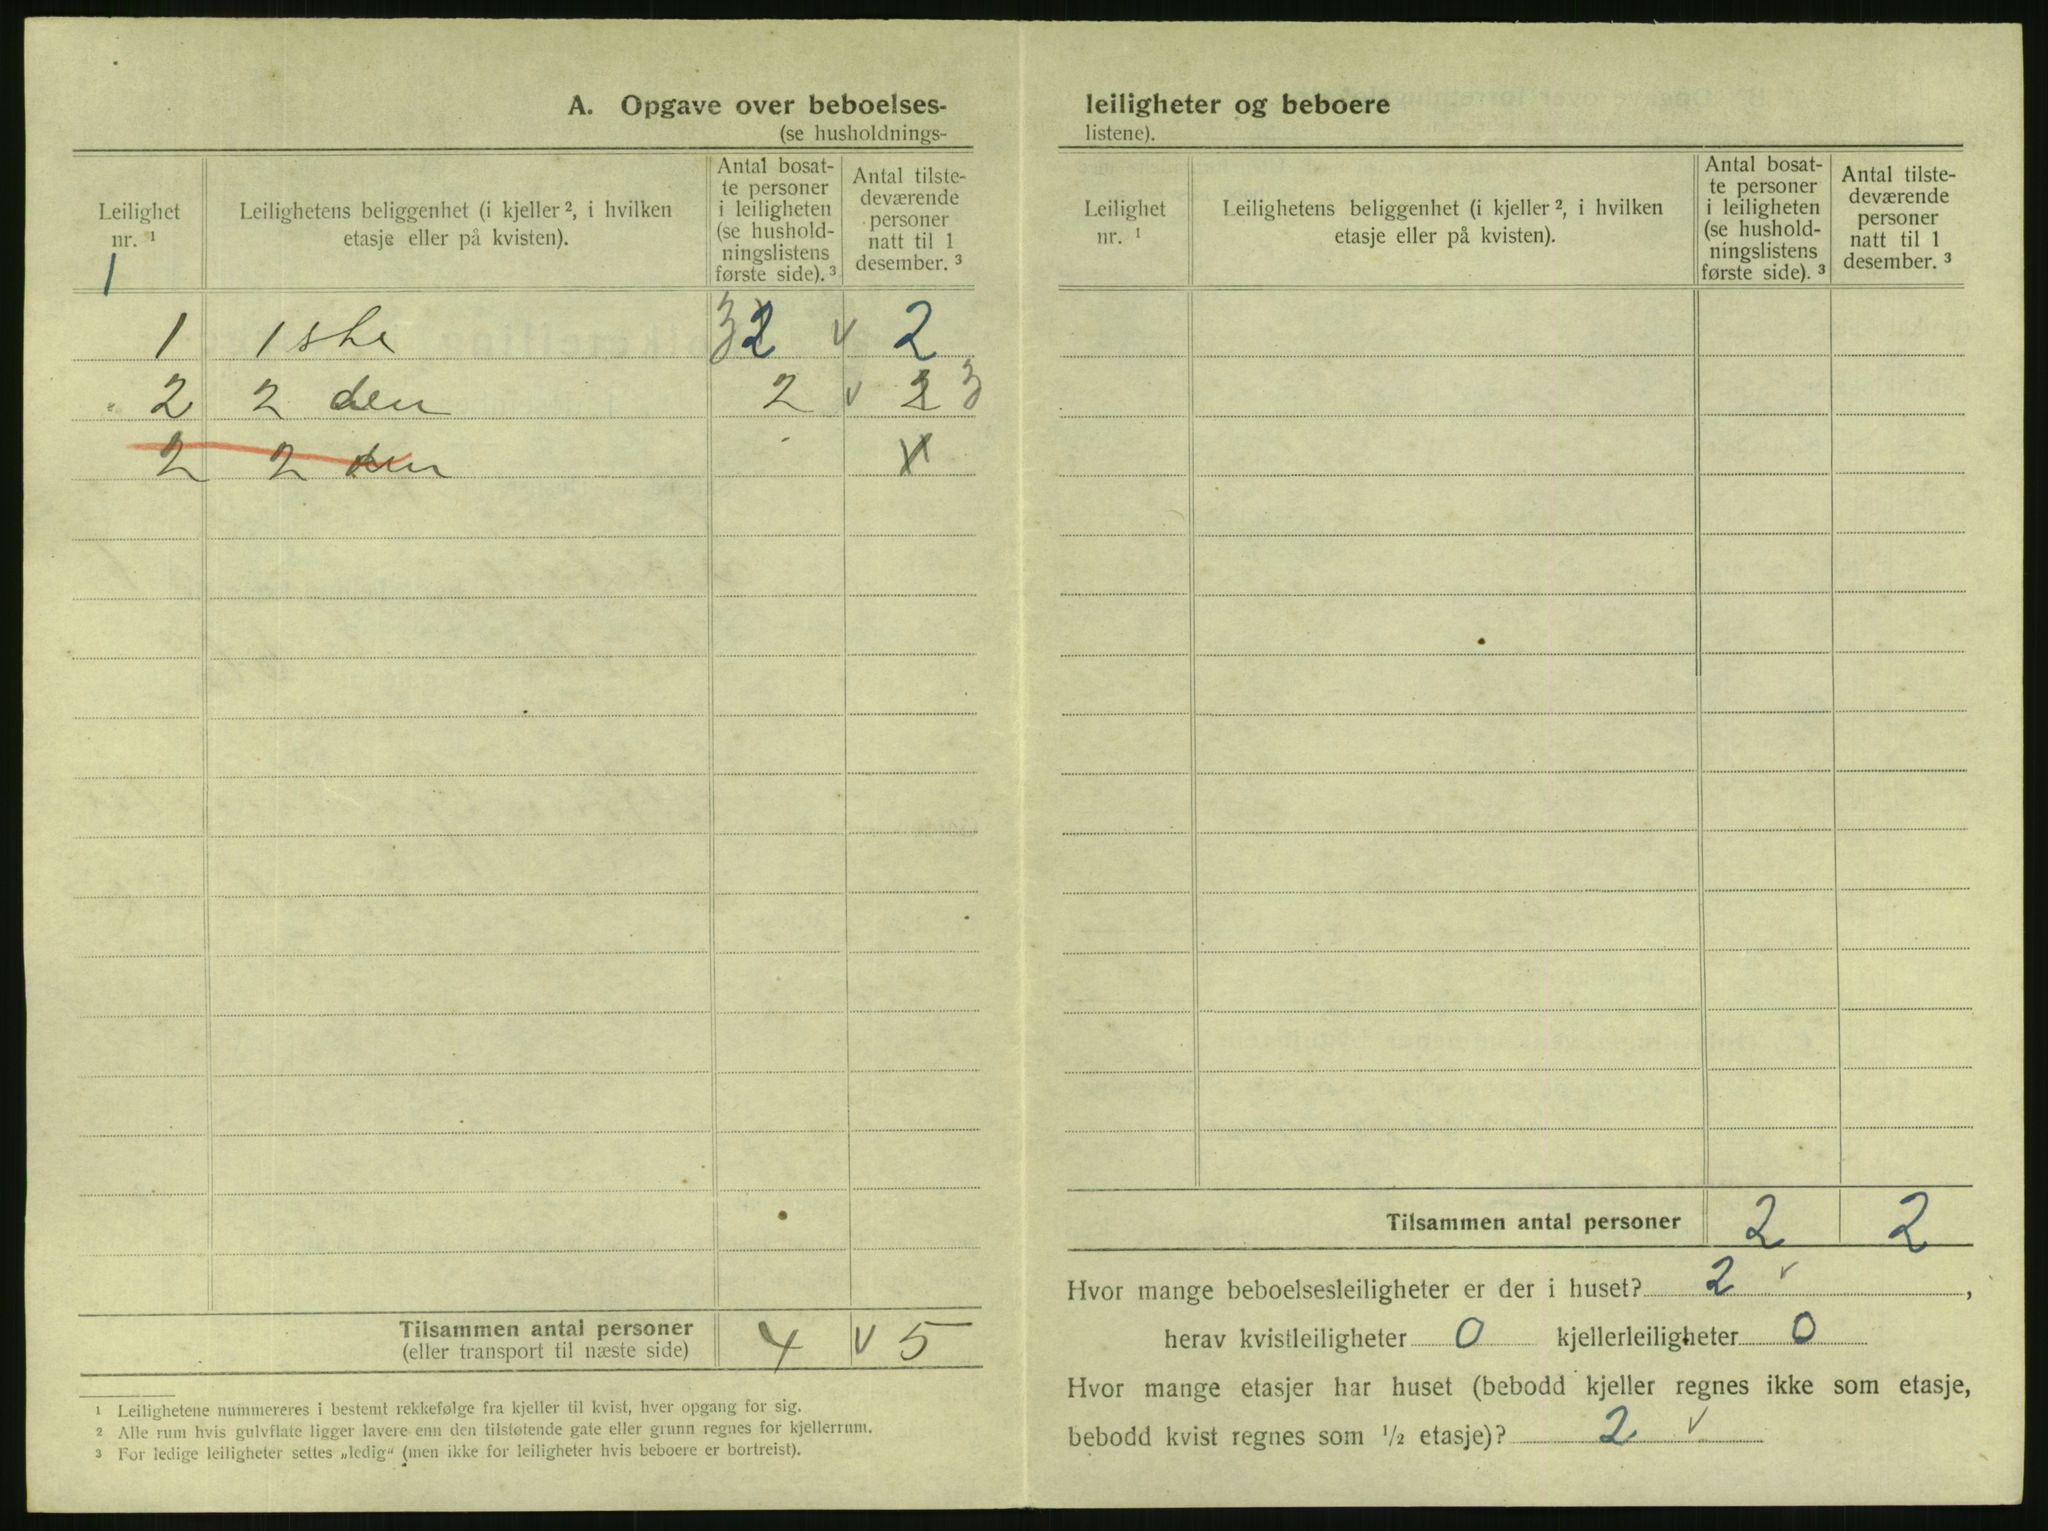 A. Opgave over beboelses-
(se husholdnings-
Leilighet
nr. ¹
Leilighetens beliggenhet (i kjeller ², i hvilken
etasje eller på kvisten).
Antal bosat-
te personer
i leiligheten
(se hushold-
ningslistens
første side). ³
Antal tilste-
deværende
personer
natt til 1
desember. ³
1
1 1ste 3 2 v 2
2 2 den 2 v 2 3
2 2 den
Tilsammen antal personer 4 v 5
(eller transport til næste side)
¹ Leilighetene nummereres i bestemt rekkefølge fra kjeller til kvist, hver opgang for sig.
² Alle rum hvis gulvflate ligger lavere enn den tilstøtende gate eller grunn regnes for kjellerrum.
³ For ledige leiligheter settes „ledig“ (men ikke for leiligheter hvis beboere er bortreist).
leiligheter og beboere
listene).
Leilighet
nr. ¹
Leilighetens beliggenhet (i kjeller ², i hvilken
etasje eller på kvisten).
Antal bosat-
te personer
i leiligheten
(se hushold-
ningslistens
første side). ³
Antal tilste-
deværende
personer
natt til 1
desember. ³
Tilsammen antal personer 2 2
Hvor mange beboelsesleiligheter er der i huset? 2 v ,
herav kvistleiligheter 0 kjellerleiligheter 0
Hvor mange etasjer har huset (bebodd kjeller regnes ikke som etasje,
bebodd kvist regnes som ½ etasje)? 2 v